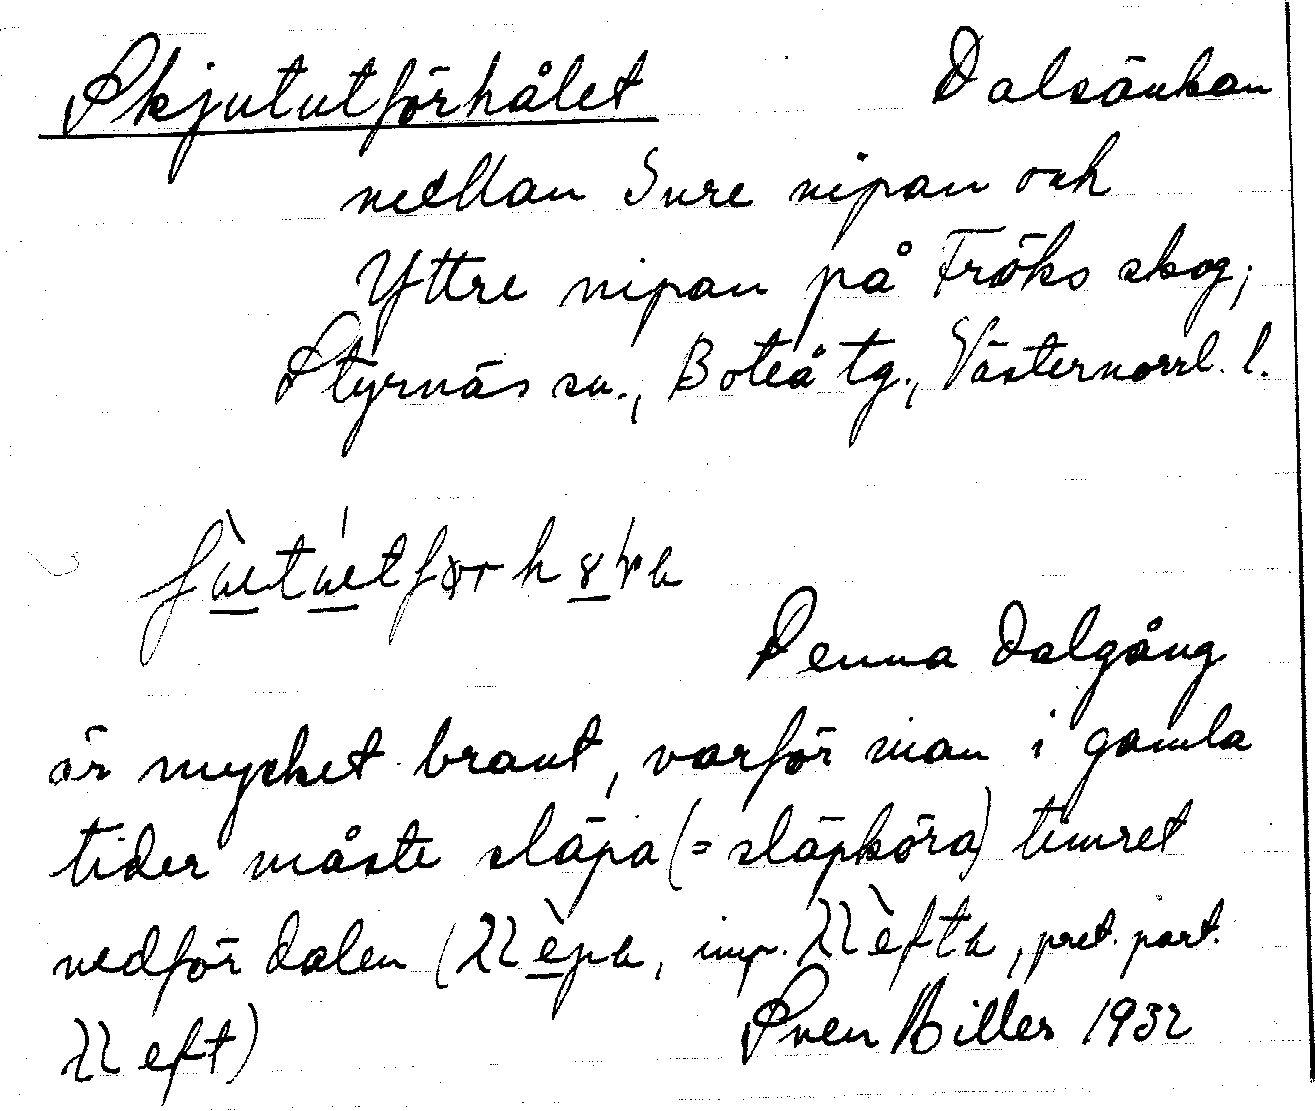 Skjututförhålet Dalsänkan
mellan Inre nipan och
Yttre nipan på Fröks skog,
Styrnäs sn., Boteå tg., Västernorrl. l.
Denna dalgång
är mycket brant, varför man i gamla
tider måste släpa (= släpköra) timret
nedför dalen ( , imp. , pret. part.
)
Sven Hillers 1932